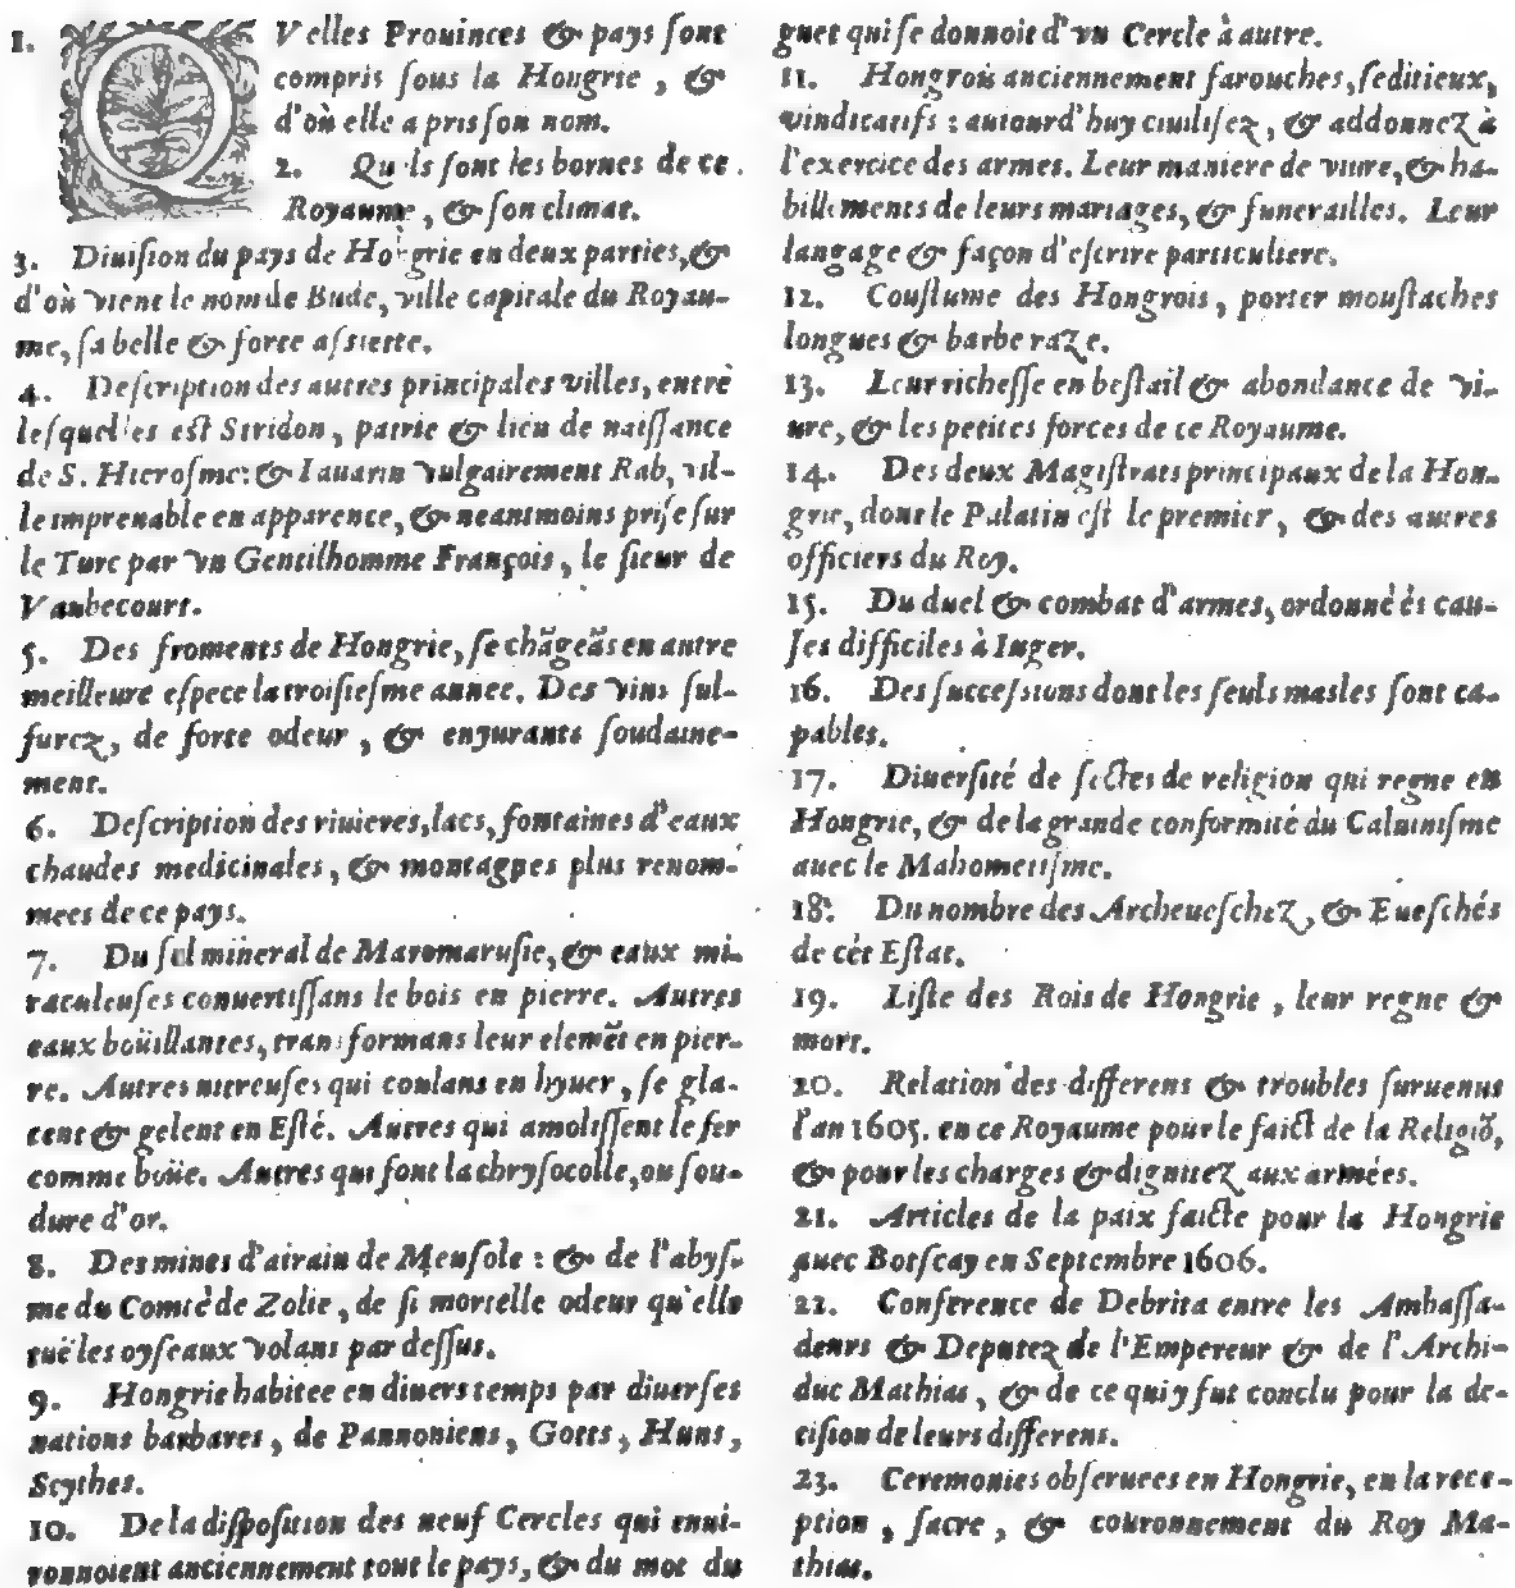 1. QVelles Prouinces & pays sont
compris sous la Hongrie, &
d'où elle a pris son nom.
2. Quels sont les bornes de ce
Royaume, & son climat.
3. Diuision du pays de Hongrie en deux parties, &
d'où vient le nom de Bude, ville capitale du Royau-
me, sa belle & forte assiette.
4. Description des autres principales villes, entre
lesquelles est Stridon, patrie & lieu de naissance
de S. Hierosme: & Iauarin vulgairement Rab, vil-
le imprenable en apparence, & neantmoins prise sur
le Turc par vn Gentilhomme François, le sieur de
Vaubecourt.
5. Des froments de Hongrie, se chãgeãs en autre
meilleure espece la troisiesme annee. Des vins sul-
furez, de forte odeur, & enyurants soudaine-
ment.
6. Description des riuieres, lacs, fontaines d'eaux
chaudes medicinales, & montagnes plus renom-
mees de ce pays.
7. Du sel mineral de Maromarusie, & eaux mi-
raculeuses conuertissans le bois en pierre. Autres
eaux boüillantes, transformans leur elemẽt en pier-
re. Autres nitreuses qui coulans en hyuer, se gla-
cent & gelent en Esté. Autres qui amolissent le fer
comme boüe. Autres qui font la chrysocolle, ou sou-
dure d'or.
8. Des mines d'airain de Meusole: & de l'abys-
me du Comté de Zolie, de si mortelle odeur qu'elle
tuë les oyseaux volans par dessus.
9. Hongrie habitee en diuers temps par diuerses
nations barbares, de Pannoniens, Gotts, Huns,
Scythes.
10. De la disposition des neuf Cercles qui enui-
ronnoient anciennement tout le pays, & du mot du
guet qui se donnoit d'vn Cercle à autre.
11. Hongrois anciennement farouches, seditieux,
vindicatifs: auiourd'huy ciuilisez, & addonnez à
l'exercice des armes. Leur maniere de viure, & ha-
billements de leurs mariages, & funerailles. Leur
langage & façon d'escrire particuliere.
12. Coustume des Hongrois, porter moustaches
longues & barbe raze.
13. Leur richesse en bestail & abondance de vi-
ure, & les petites forces de ce Royaume.
14. Des deux Magistrats principaux de la Hon-
grie, dont le Palatin est le premier, & des autres
officiers du Roy.
15. Du duel & combat d'armes, ordonné és cau-
ses difficiles à Iuger.
16. Des successions dont les seuls masles sont ca-
pables.
17. Diuersité de sectes de religion qui regne en
Hongrie, & de la grande conformité du Caluinisme
auec le Mahometisme.
18. Du nombre des Archeueschez, & Eueschés
de cét Estat.
19. Liste des Rois de Hongrie, leur regne &
mort.
20. Relation des differens & troubles suruenus
l'an 1605. en ce Royaume pour le faict de la Religiõ,
& pour les charges & dignitez aux armées.
21. Articles de la paix faicte pour la Hongrie
auec Botscay en Septembre 1606.
22. Conference de Debrita entre les Ambassa-
deurs & Deputez de l'Empereur & de l'Archi-
duc Mathias, & de ce qui y fut conclu pour la de-
cision de leurs differens.
23. Ceremonies obseruees en Hongrie, en la rece-
ption, sacre, & couronnement du Roy Ma-
thias.